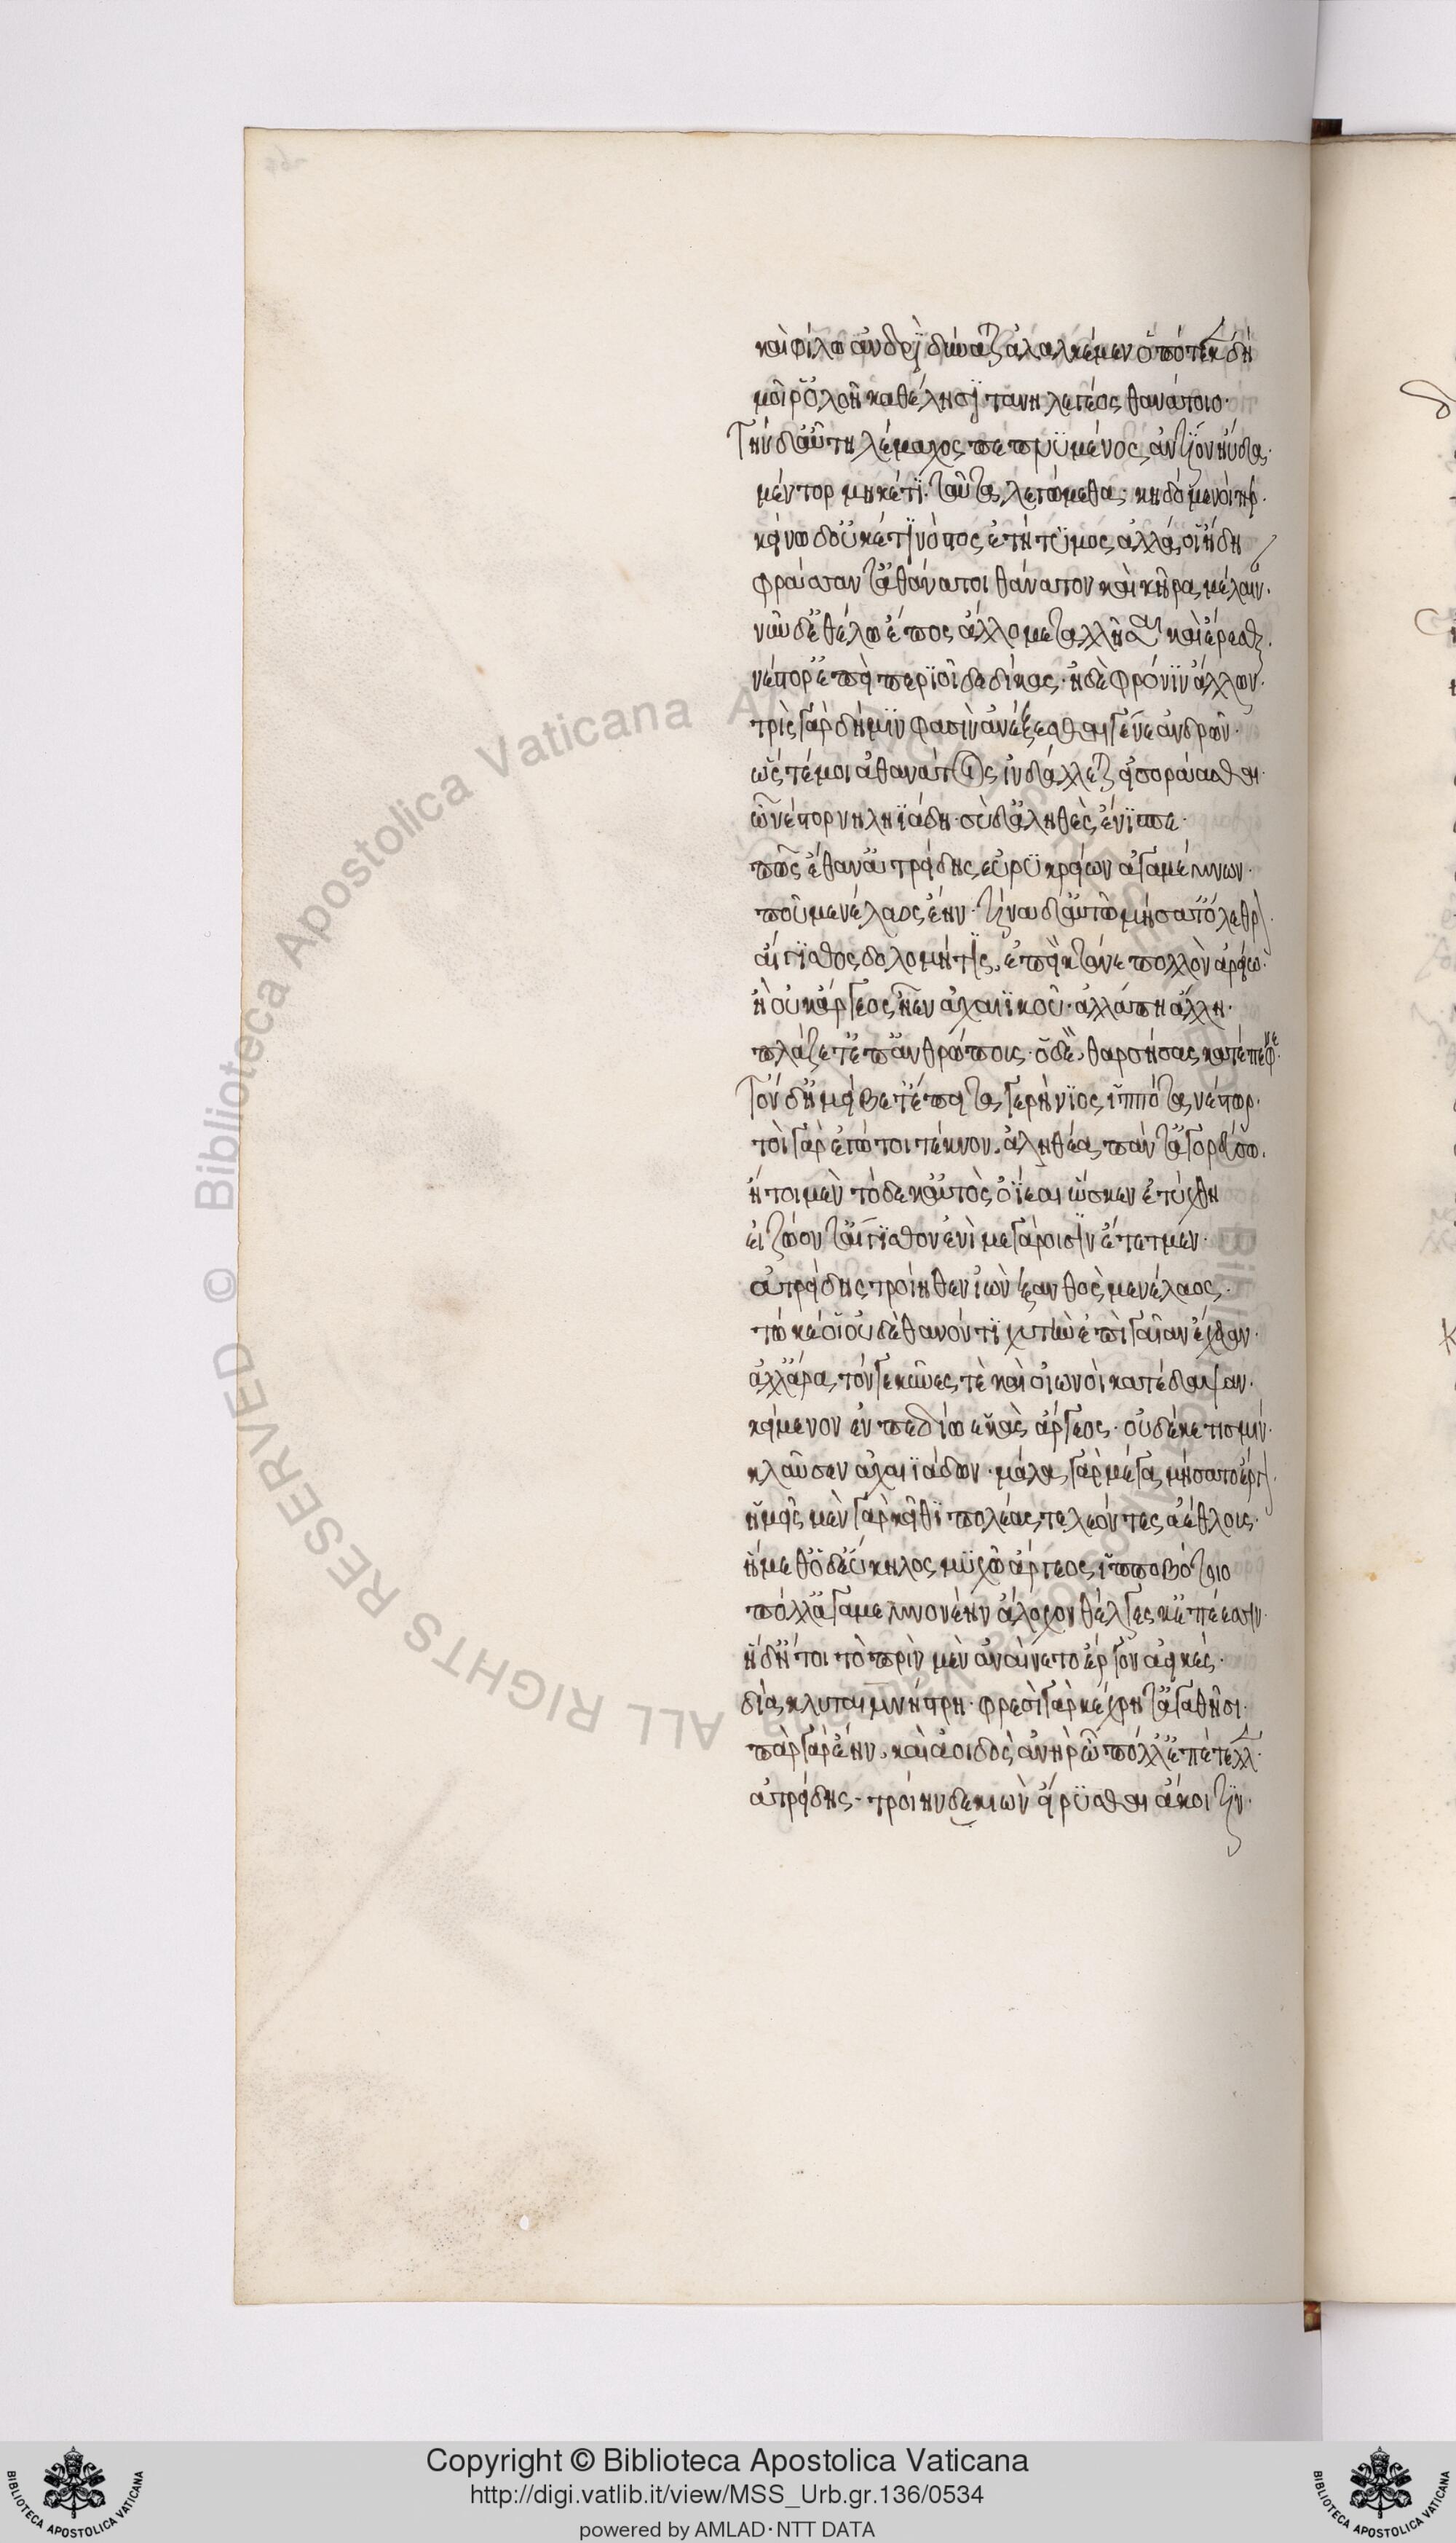 καὶ φίλω ἀνδρὶ δύναται ἀλαλκέμεν ὁππότε κεν δὴ
μοῖρ ὀλοὴ καθέλησι τανηλεγέος θανάτοιο·
Τὴν δ αὖ τηλέμαχος πεπνυμένος ἀντίον ηὔδα·
μέντορ μηκέτι ταῦτα λεγώμεθα κηδόμενοί περ·
κείνω δ οὐκέτι νόστος ἐτήτυμος ἀλλά οἱ ἤδη
φράσσαντ ἀθάνατοι θάνατον καὶ κῆρα μέλαιν·
νῦν δ ἐθέλω ἔπος ἄλλο μεταλλῆσαι καὶ ἐρέσθαι·
νέστορ ἐπεὶ περίοιδε δίκας· ἠδὲ φρόνιν ἄλλων·
τρὶς γὰρ δή μιν φασὶν ἀνάξεσθαι γένε ἀνδρῶν·
ὥς τέ μοι ἀθάνατος ἰνδάλλεται εἰσοράασθαι·
ὦ νέστορ νηληϊάδη· σὺ δ ἀληθὲς ἐνίσπε·
πῶς ἔθαν ἀτρείδης εὐρυκρείων ἀγαμέμνων·
ποῦ μενέλαος ἔην· τίνα δ αὐτῶ μήσατ ὄλεθρον·
αἴγισθος δολόμητις, ἐπεὶ κτάνε πολλὸν ἀρείω·
ἢ οὐκ ἄργεος ἦεν ἀχαιϊκοῦ· ἀλλά πη ἄλλη·
πλάζετ ἐπ ἀνθρώπους· ὁ δὲ θαρσήσας κατέπεφνε·
Τὸν δ ἠμείβετ ἔπειτα γερήνιος ἱππότα νέστωρ·
τοὶ γὰρ ἐγώ τοι τέκνον ἀληθέα πάντ ἀγορεύσω·
ἤτοι μὲν τόδε καὐτὸς ὀΐεαι ὥς κεν ἐτύχθη
εἰ ζωόν τ αἴγισθον ἐνὶ μεγάροισιν ἔτετμεν·
ἀτρείδης τροίηθεν ἰὼν ξανθὸς μενέλαος·
τῶ κέ οἱ οὐδὲ θανόντι χυτὴν ἐπὶ γαῖαν ἔχευαν·
ἀλλ ἄρα τόν γε κύνες τὲ καὶ οἰωνοὶ κατέδαψαν·
κείμενον ἐν πεδίω ἑκὰς ἄργεος· οὐδέ κέ τίς μιν
κλαῦσεν ἀχαιϊάδων· μάλα γὰρ μέγα μήσατο ἔργον·
ἡμεῖς μὲν γὰρ κεῖθι πολέας τελέοντες ἀέθλους·
ἥμεθ ὁ δ εὔκηλος μυχῶ ἄργεος ἱπποβότοιο
πόλλ ἀγαμεμνονέην ἄλοχον θέλγεσκ ἐπέεσσιν·
ἡ δ ἤτοι τὸ πρὶν μὲν ἀναίνετο ἔργον ἀεικές·
δῖα κλυταιμνήστρη· φρεσὶ γὰρ κέχρητ ἀγαθῆσι·
πὰρ γὰρ ἔην καὶ ἀοιδὸς ἀνὴρ ὧ πόλλ ἐπέτελλεν·
ἀτρείδης· τροίηνδε κιὼν εἴρυσθαι ἄκοιτιν·
Copyright © Biblioteca Apostolica Vaticana
http://digi.vatlib.it/view/MSS_Urb.gr.136/0534
powered by AMLAD·NTT DATA